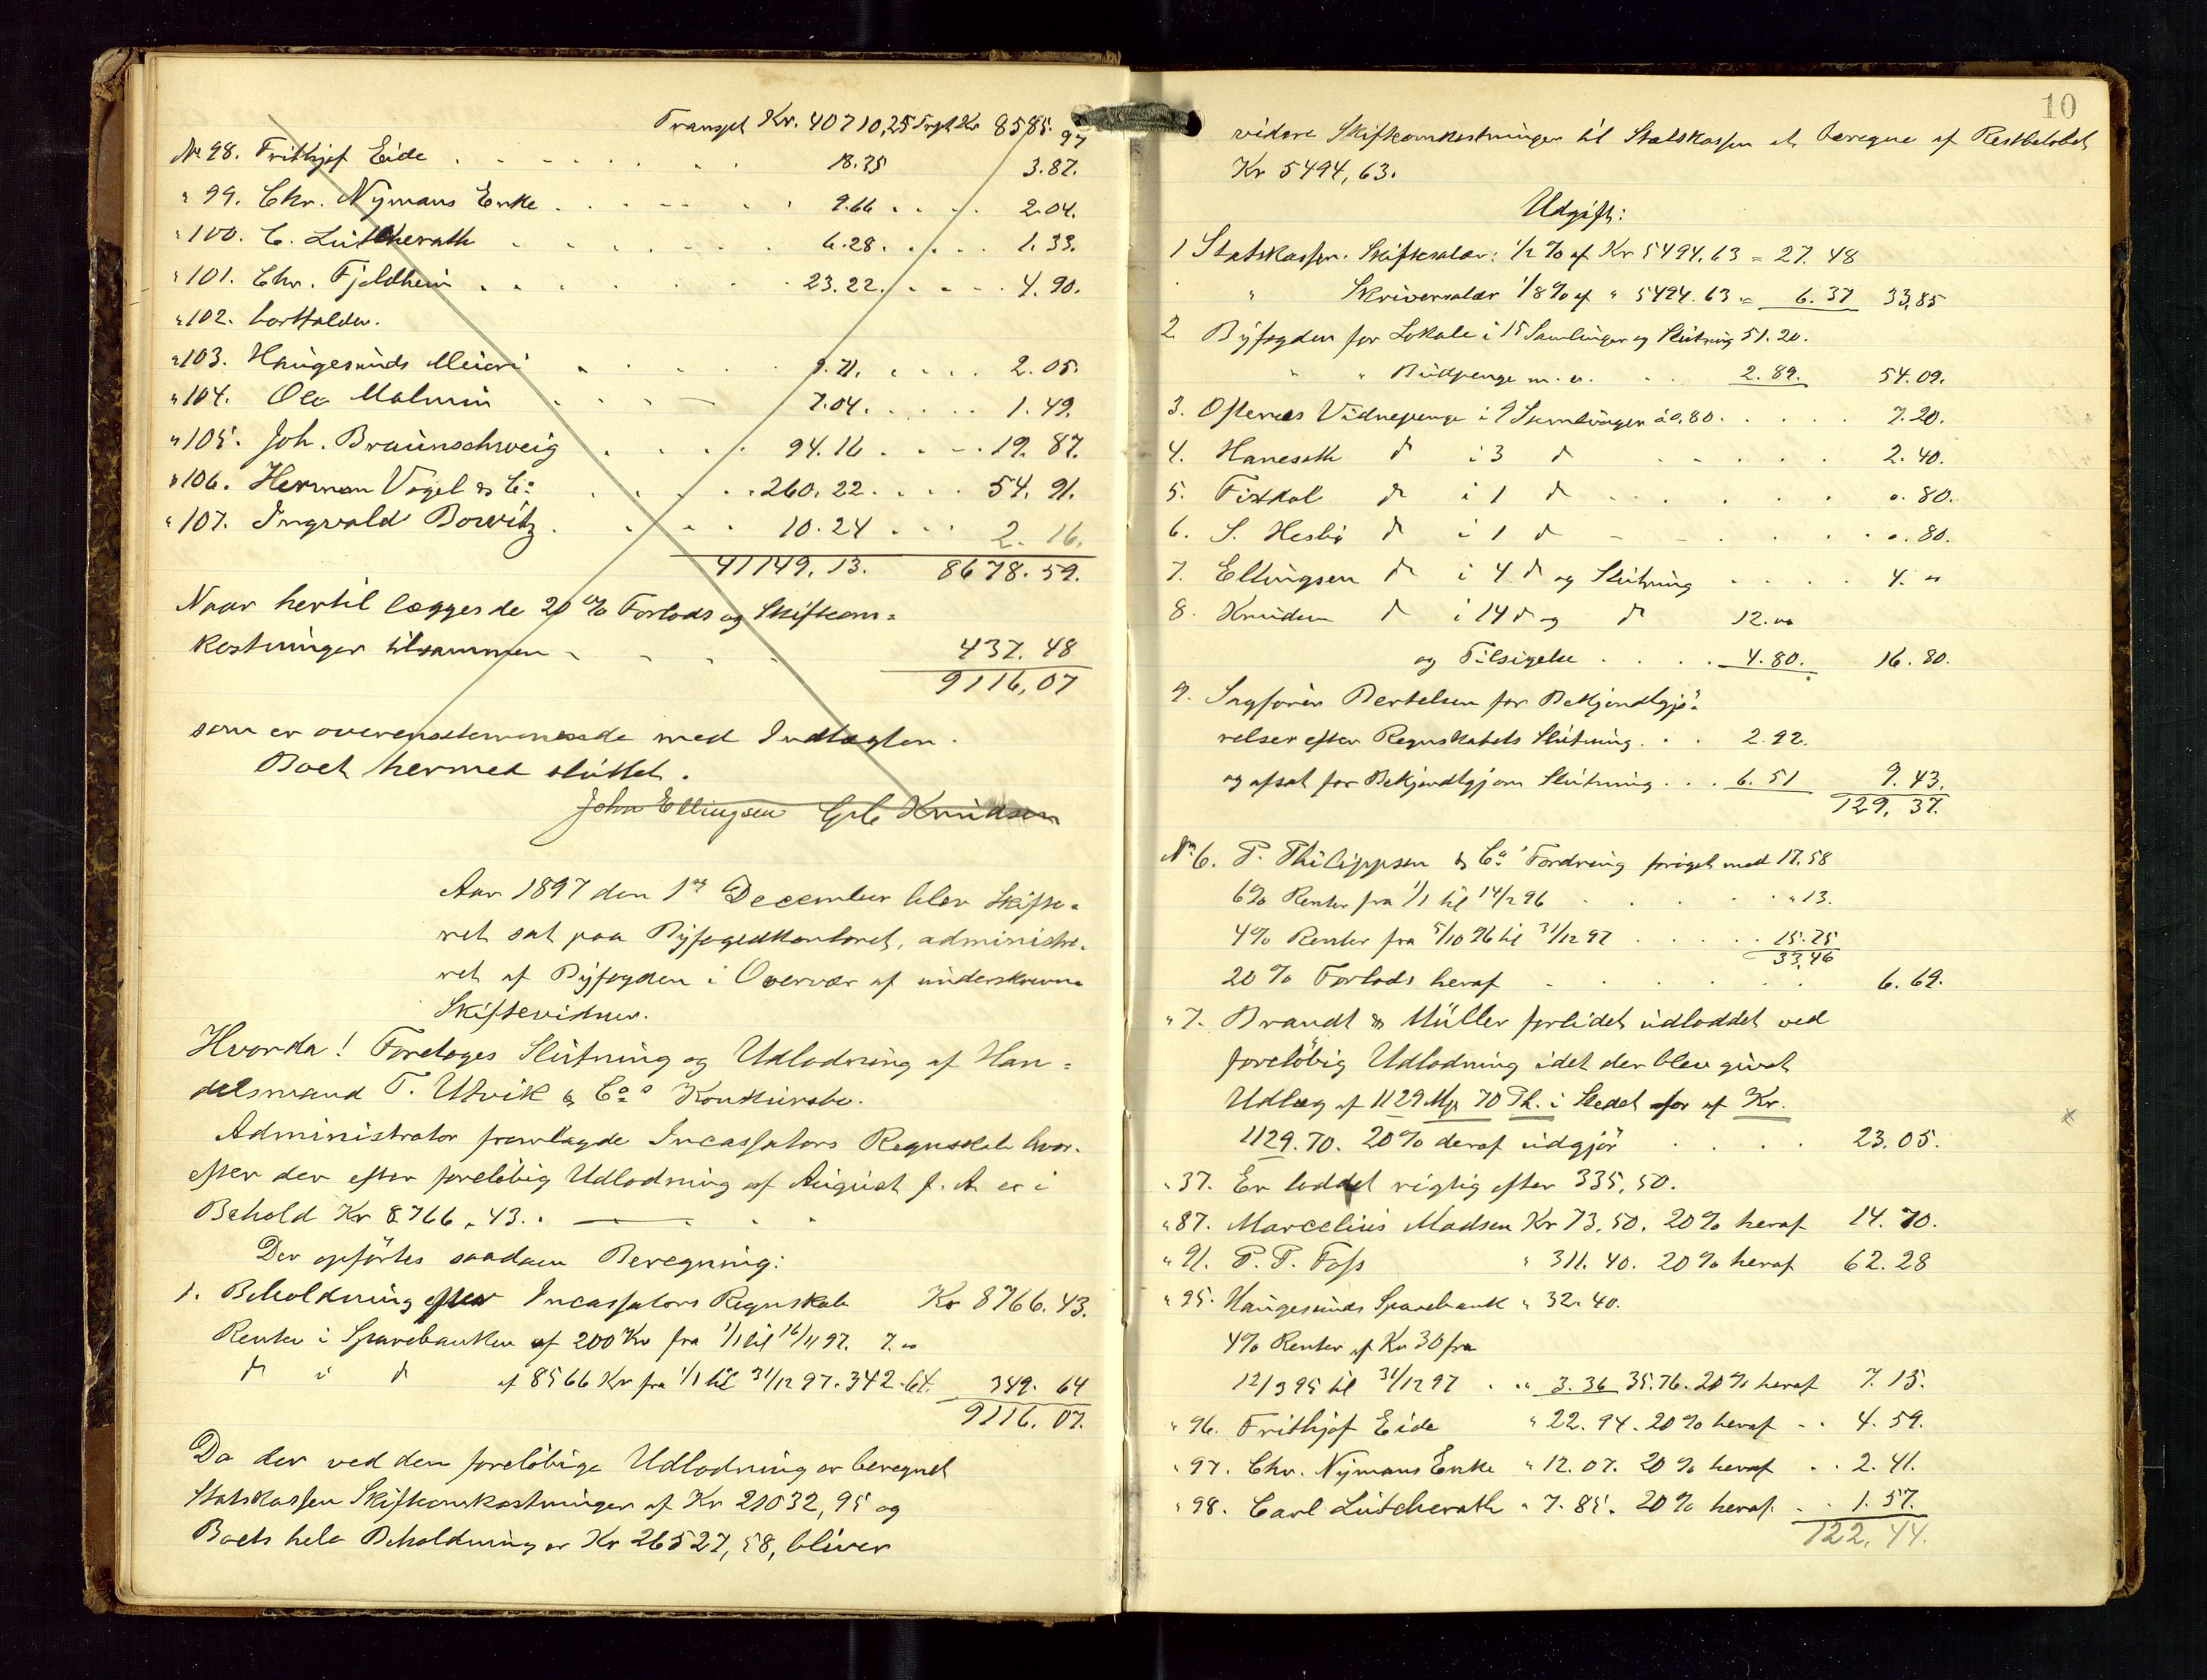 Transpt Kr. 40710,25 Trspt Kr 8585.97
No 98. Frithjof Eide . . . . . . . 18.35 3.87.
" 99. Chr. Nymans Enke . . . . . 9.66 . . . . 2.04.
" 100. C. Lütcherath . . . . . . 6.28. . . . . 1.33.
" 101. Chr. Fjeldheim . . . . . 23.22. . . . . 4.90.
" 102. bortfalder.
" 103. Haugesunds Meieri . . . . 9.71. . . . . 2.05.
" 104. Ole Malmin . . . . 7.04. . . . . . 1.49.
" 105. Joh. Braunschweig . . . . 94.16 . . . . 19.87.
" 106. Herman Vogel & Co . . . . . 260.22. . . . 54.91.
" 107. Ingvald Borvitz . . . . 10.24 . . . 2.16.
41149,13. 8678.59.
Naar hertil lægges de 20 % Forlods og Skifteom=
kostninger tilsammen - - - . . 437.48
9116,07
som er overensstemmende med Indtægten.
Boet hermed sluttet.
John Ellingsen Knudsen
Aar 1897 den 1ste December blev Skifte=
ret sat paa Byfogedkontoret, administre=
ret af Byfogden i Overvær af underskrevne
Skiftevidner.
Hvorda! Foretoges Slutning og Udlodning af Han=
delsmand T. Utvik & Co s Konkursbo.
Administrator fremlagde Incassators Regnskab hvor=
efter der efter foreløbig Udlodning af August f. A. er i
Behold Kr 8766,43. . — . . .
Der opførtes saadan Beregning:
1. Beholdning efter Incassators Regnskab Kr 8766.43.
Renter i Sparebanken af 200 Kr fra 1/1 til 16/11 97. 7.00
do i do af 8566 Kr fra 1/1 til 31/12 97. 342.64. 349.64
9116.07.
Da der ved den foreløbige Udlodning er beregnet
Statskassen Skifteomkostninger af Kr 21032,95 og
Boets hele Beholdning er Kr 26527,58, bliver
10
videre Skifteomkostninger til Statskassen at beregne af Restbeløbet
Kr 5494,63.
Udgift:
1 Statskassen. Skiftesalær: 1/2 % af Kr 5494.63 = 27.48
" Skriversalær 1/8 % af " 5494.63 = 6.37 33,85
2 Byfogden for Lokale i 15 Samlinger og Slutning 51.20.
" " Budpenge m.v. . . . 2.89. 54.09.
3. Oftenes Vidnepenge i 9 Samlinger à 0,80. . . . . 7.20.
4. Haneseth do i 3 do . . . . . 2.40.
5. Fixdal do i 1 do . . . . . . 0.80.
6. S. Hesbø do i 1 do - - . . . . 0.80.
7. Ellingsen do i 4 do og Slutning . . . . 4.00
8. Knudsen do i 14 do og do 12.00
og Tilsigelse . . . . 4.80. 16.80.
9. Sagfører Bertelsen for Bekjendtgjø=
relser efter Regnskabets Slutning. . . 2.92.
og afsat for Bekjendtgj om Slutning . . . 6.51 9.43.
129.37.
No 6. P. Philippsen & Co's Fordring forøget med 17.58
6% Renter fra 1/1 til 14/2 96 . . . . . " 13.
4% Renter fra 5/10 96 til 31/12 97 . . . . . 15.75
33,46
20 % Forlods heraf . . . . . . 6.69.
" 7. Brandt & Müller forlidet udloddet ved
foreløbig Udlodning idet der blev givet
Udlæg af 1129 Mp 70 Pf. i Stedet for af Kr.
1129.70. 20% deraf udgjør . . . . 23.05.
" 37. Er loddet rigtig efter 335,50.
" 87. Marcelius Madsen Kr 73.50. 20% heraf 14.70.
" 91. P. T. Foss " 311.40. 20% heraf 62.28
" 95. Haugesunds Sparebank " 32.40.
4% Renter af Kr 30 fra
12/3 95 til 31/12 97 . . " 3.36 35.76. 20% heraf 7.15.
" 96. Frithjof Eide " 22.94. 20% heraf . . 4.59.
" 97. Chr. Nymans Enke " 12.07. 20% heraf . . 2.41.
" 98. Carl Lütcherath " 7.85. 20% heraf . . 1.57.
122,44.